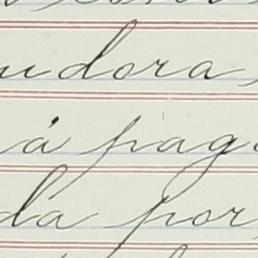 udora
á pag
da por